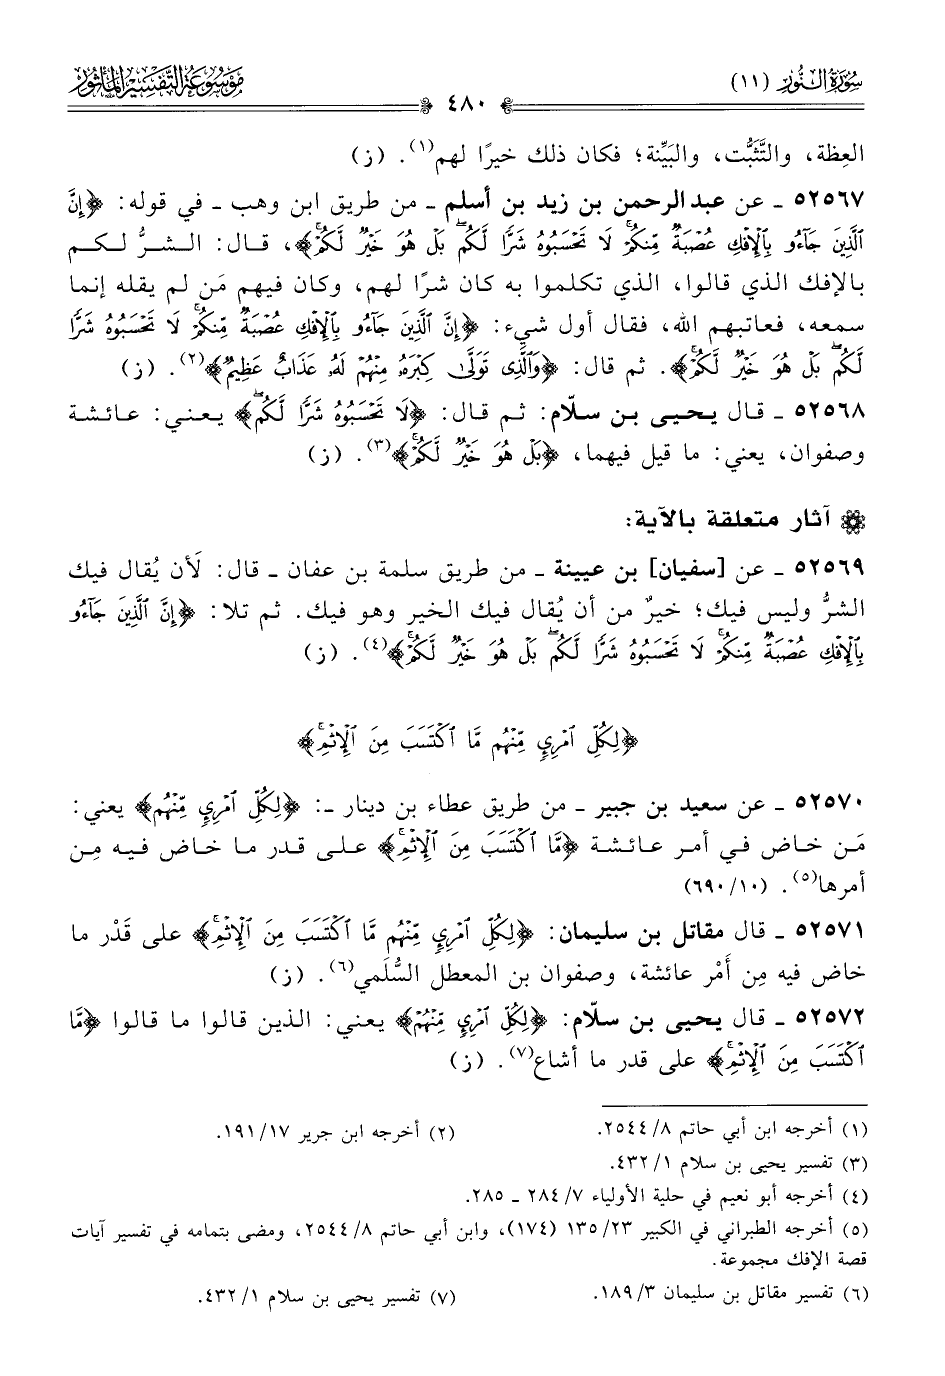 سُورَةُ النُّور (١١)
مَوْسُوعَةُ التَّفْسِيرِ المَأْثُور
٤٨٠
العِظة، والتَّثَبُّت، والبَيِّنة؛ فكان ذلك خيرًا لهم(١). (ز)
٥٢٥٦٧ ـ عن عبد الرحمن بن زيد بن أسلم ـ من طريق ابن وهب ـ في قوله: ﴿إِنَّ
الَّذِينَ جَآءُو بِالْإِفْكِ عُصْبَةٌ مِّنكُمْ ۚ لَا تَحْسَبُوهُ شَرًّا لَّكُم ۖ بَلْ هُوَ خَيْرٌ لَّكُمْ ۚ﴾، قال: الشرُّ لكم
بالإفك الذي قالوا، الذي تكلموا به كان شرًا لهم، وكان فيهم مَن لم يقله إنما
سمعه، فعاتبهم الله، فقال أول شيء: ﴿إِنَّ الَّذِينَ جَآءُو بِالْإِفْكِ عُصْبَةٌ مِّنكُمْ ۚ لَا تَحْسَبُوهُ شَرًّا
لَّكُم ۖ بَلْ هُوَ خَيْرٌ لَّكُمْ ۚ﴾. ثم قال: ﴿وَالَّذِى تَوَلَّىٰ كِبْرَهُۥ مِنْهُمْ لَهُۥ عَذَابٌ عَظِيمٌ﴾(٢). (ز)
٥٢٥٦٨ ـ قال يحيى بن سلّام: ثم قال: ﴿لَا تَحْسَبُوهُ شَرًّا لَّكُم ۖ﴾ يعني: عائشة
وصفوان، يعني: ما قيل فيهما، ﴿بَلْ هُوَ خَيْرٌ لَّكُمْ ۚ﴾(٣). (ز)
آثار متعلقة بالآية:
٥٢٥٦٩ ـ عن [سفيان] بن عيينة ـ من طريق سلمة بن عفان ـ قال: لَأن يُقال فيك
الشرُّ وليس فيك؛ خيرٌ من أن يُقال فيك الخير وهو فيك. ثم تلا: ﴿إِنَّ الَّذِينَ جَآءُو
بِالْإِفْكِ عُصْبَةٌ مِّنكُمْ ۚ لَا تَحْسَبُوهُ شَرًّا لَّكُم ۖ بَلْ هُوَ خَيْرٌ لَّكُمْ ۚ﴾(٤). (ز)
﴿لِكُلِّ ٱمْرِئٍ مِّنْهُم مَّا ٱكْتَسَبَ مِنَ ٱلْإِثْمِ ۚ﴾
٥٢٥٧٠ ـ عن سعيد بن جبير ـ من طريق عطاء بن دينار ـ: ﴿لِكُلِّ ٱمْرِئٍ مِّنْهُم﴾ يعني:
مَن خاض في أمر عائشة ﴿مَّا ٱكْتَسَبَ مِنَ ٱلْإِثْمِ ۚ﴾ على قدر ما خاض فيه مِن
أمرها(٥). (١٠/ ٦٩٠)
٥٢٥٧١ ـ قال مقاتل بن سليمان: ﴿لِكُلِّ ٱمْرِئٍ مِّنْهُم مَّا ٱكْتَسَبَ مِنَ ٱلْإِثْمِ ۚ﴾ على قَدْر ما
خاض فيه مِن أَمْر عائشة، وصفوان بن المعطل السُّلَمي(٦). (ز)
٥٢٥٧٢ ـ قال يحيى بن سلّام: ﴿لِكُلِّ ٱمْرِئٍ مِّنْهُم﴾ يعني: الذين قالوا ما قالوا ﴿مَّا
ٱكْتَسَبَ مِنَ ٱلْإِثْمِ ۚ﴾ على قدر ما أشاع(٧). (ز)
(١) أخرجه ابن أبي حاتم ٨/ ٢٥٤٤.
(٢) أخرجه ابن جرير ١٧/ ١٩١.
(٣) تفسير يحيى بن سلام ١/ ٤٣٢.
(٤) أخرجه أبو نعيم في حلية الأولياء ٧/ ٢٨٤ ـ ٢٨٥.
(٥) أخرجه الطبراني في الكبير ٢٣/ ١٣٥ (١٧٤)، وابن أبي حاتم ٨/ ٢٥٤٤، ومضى بتمامه في تفسير آيات
قصة الإفك مجموعة.
(٦) تفسير مقاتل بن سليمان ٣/ ١٨٩.
(٧) تفسير يحيى بن سلام ١/ ٤٣٢.